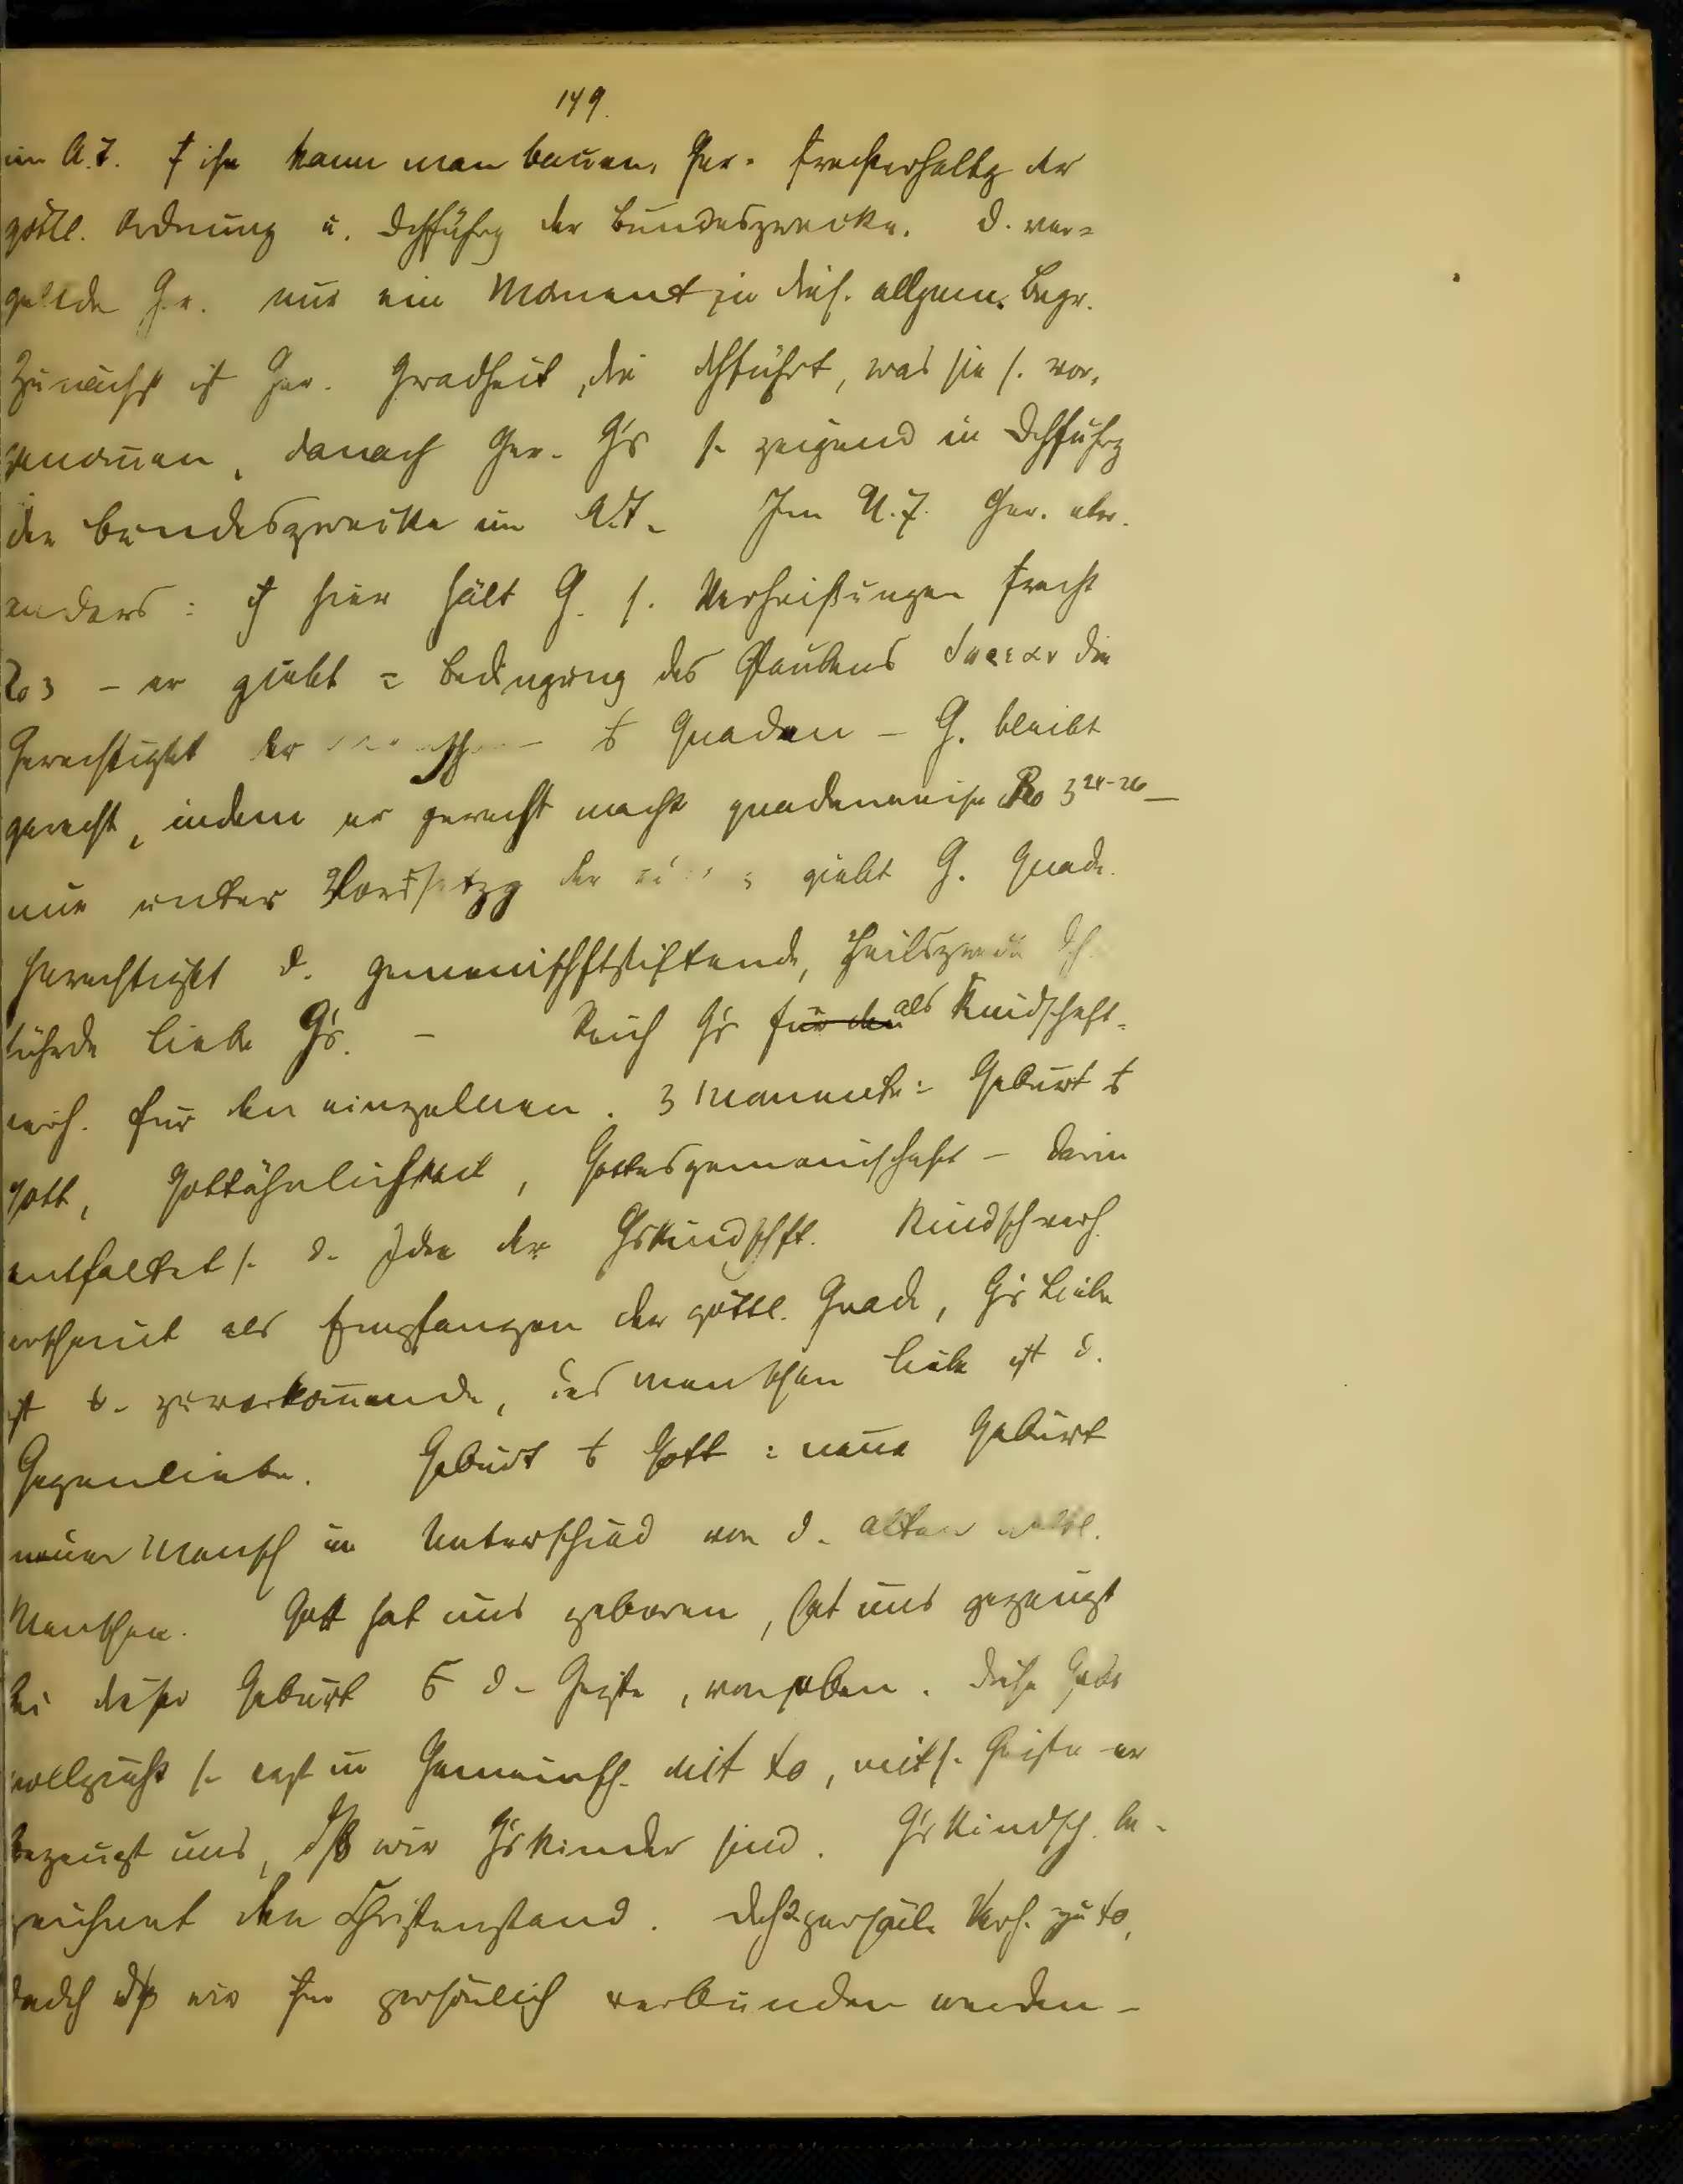 149.
im A.T. † ihn kann man bauen. Ger. frechterhaltg der
göttl. Ordnung u. Dchführg der Bundeszwecke. D. ver-
geltde Ger. nur ein Moment in dies. allgem. Begr.
Zunächst ist Ger. Gradheit, die dchführt, was sie s. vor-
genom̄en, danach Ger. G's s. zeigend in Dchführg
der Bundeszwecke im A.T. Im N.T. Ger. etw.
anders: hier hält G. s. Verheißungen frecht
Ro 3 – er giebt = Bedingung des Glaubens δωρεαν die
Gerechtigkt der – Gnaden – G. bleibt
gerecht, indem er gerecht macht gnadenweise Ro 3 24-26 –
nur unter Vorssetzg der giebt G. Gnade.
Gerechtigkt d. gemeinschftstiftende, Heilszwecke dch-
führde Liebe G's. – Reich G's für den als Kindschaft-
verh. für den einzelnen. 3 Momente: Geburt
Gott, Gottähnlichkeit, Gottesgemeinschaft – darin
entfaltet s. d. Idee der Gskindschft. Kindschverh.
erscheint als Empfangen der göttl. Gnade, G's Liebe
ist d. zuvorkom̄ende, des Menschen Liebe ist d.
Gegenliebe. Geburt Gott: neue Geburt
neuer Mensch im Unterschied von d. alten
Menschen. Gott hat uns geboren, hat uns gezeugt
bei dieser Geburt d. Geiste, von oben. Diese Gebt
vollzieht s. erst in Gemeinsch. mit , mit s. Geiste – er
bezeugt uns, dß wir G'skinder sind. G'skindsch. be-
zeichnet den Christenstand. persönl. Verh. zu ,
dadch dß wir ihm persönlich verbunden werden –